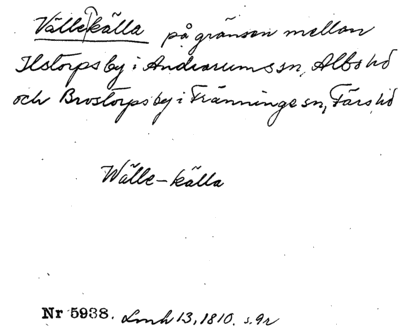 Vällekälla på gränsen mellan
Ilstorps by i Andrarums sn, Albo hd
och Brostorps by i Tranninge sn, Färs hd
Wälle-källa
Nr 5938. Lmh 13, 1810. s. 92